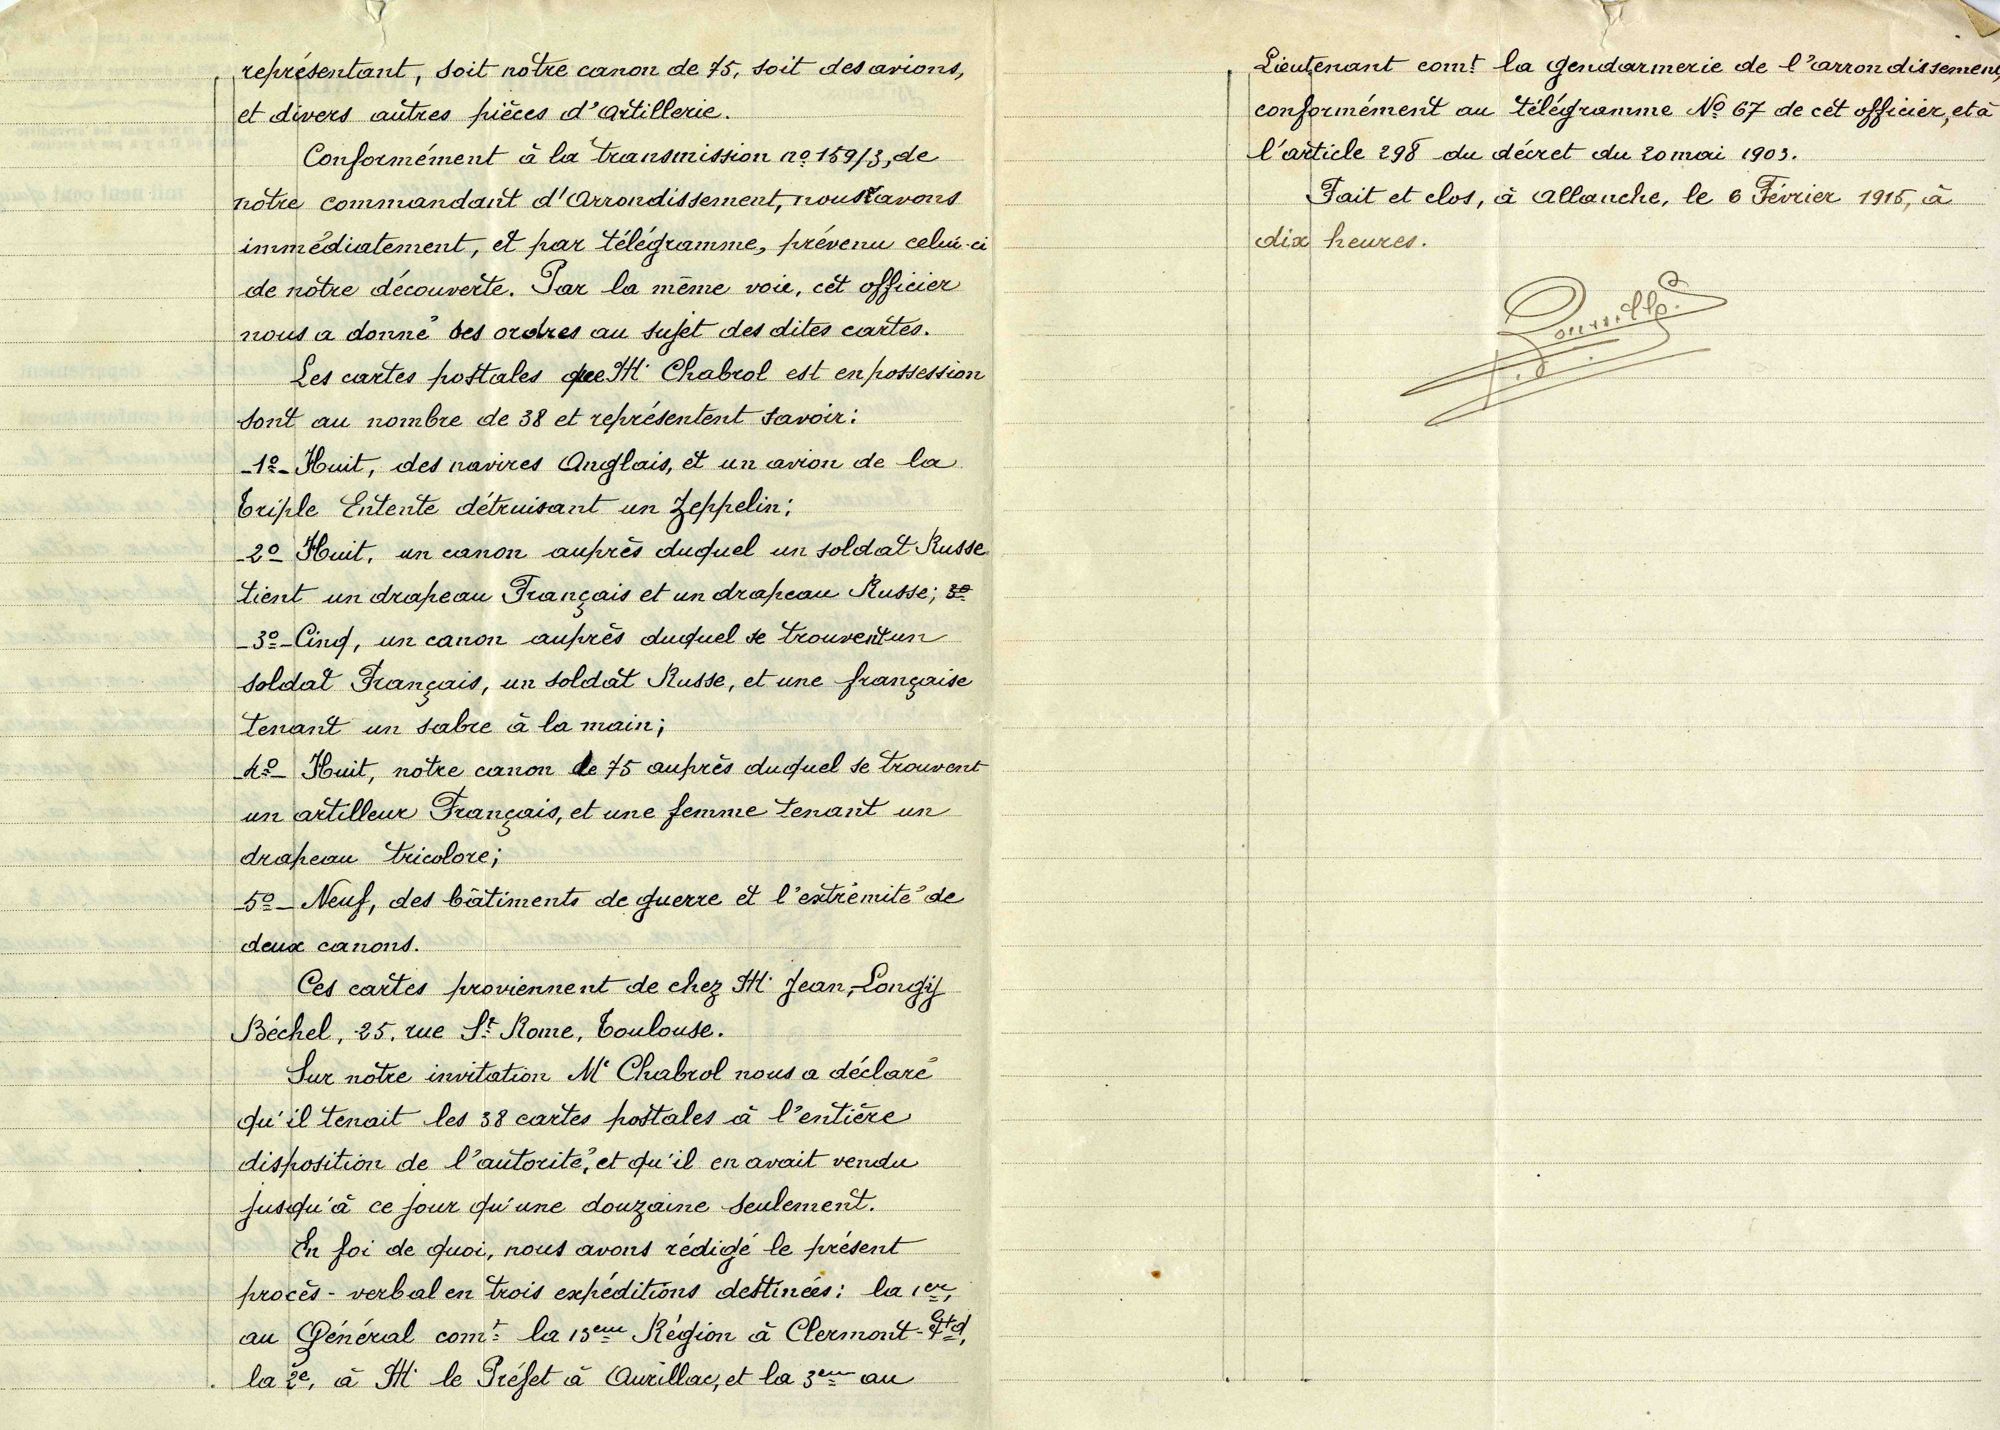 représentant, soit notre canon de 75, soit des avions,
et divers autres pièces d'Artillerie.
Conformément à la transmission nº 159/3, de
notre commandant d'Arrondissement, nous avons
immédiatement, et par télégramme, prévenu celui-ci
de notre découverte. Par la même voie, cet officier
nous a donné des ordres au sujet des dites cartes.
Les cartes postales que M. Chabrol est en possession
sont au nombre de 38 et représentent savoir:
-1º- Huit, des navires Anglais, et un avion de la
Triple Entente détruisant un Zeppelin;
-2º- Huit, un canon auprès duquel un soldat Russe
tient un drapeau Français et un drapeau Russe; 3º
-3º- Cinq, un canon auprès duquel se trouvent un
soldat Français, un soldat Russe, et une française
tenant un sabre à la main;
-4º- Huit, notre canon de 75 auprès duquel se trouvent
un artilleur Français, et une femme tenant un
drapeau tricolore;
-5º- Neuf, des bâtiments de guerre et l'extrémité de
deux canons.
Ces cartes proviennent de chez M. Jean, Longy
Béchel, 25, rue St Rome, Toulouse.
Sur notre invitation Mr Chabrol nous a déclaré
qu'il tenait les 38 cartes postales à l'entière
disposition de l'autorité, et qu'il en avait vendu
jusqu'à ce jour qu'une douzaine seulement.
En foi de quoi, nous avons rédigé le présent
procès-verbal en trois expéditions destinées: la 1ère,
au Général comt la 13eme Région à Clermont-Fd,
la 2e, à M. le Préfet à Aurillac, et la 3eme au
Lieutenant comt la gendarmerie de l'arrondissement,
conformément au télégramme Nº 67 de cet officier, et à
l'article 298 du décret du 20 mai 1903.
Fait et clos, à Allanche, le 6 Février 1915, à
dix heures.